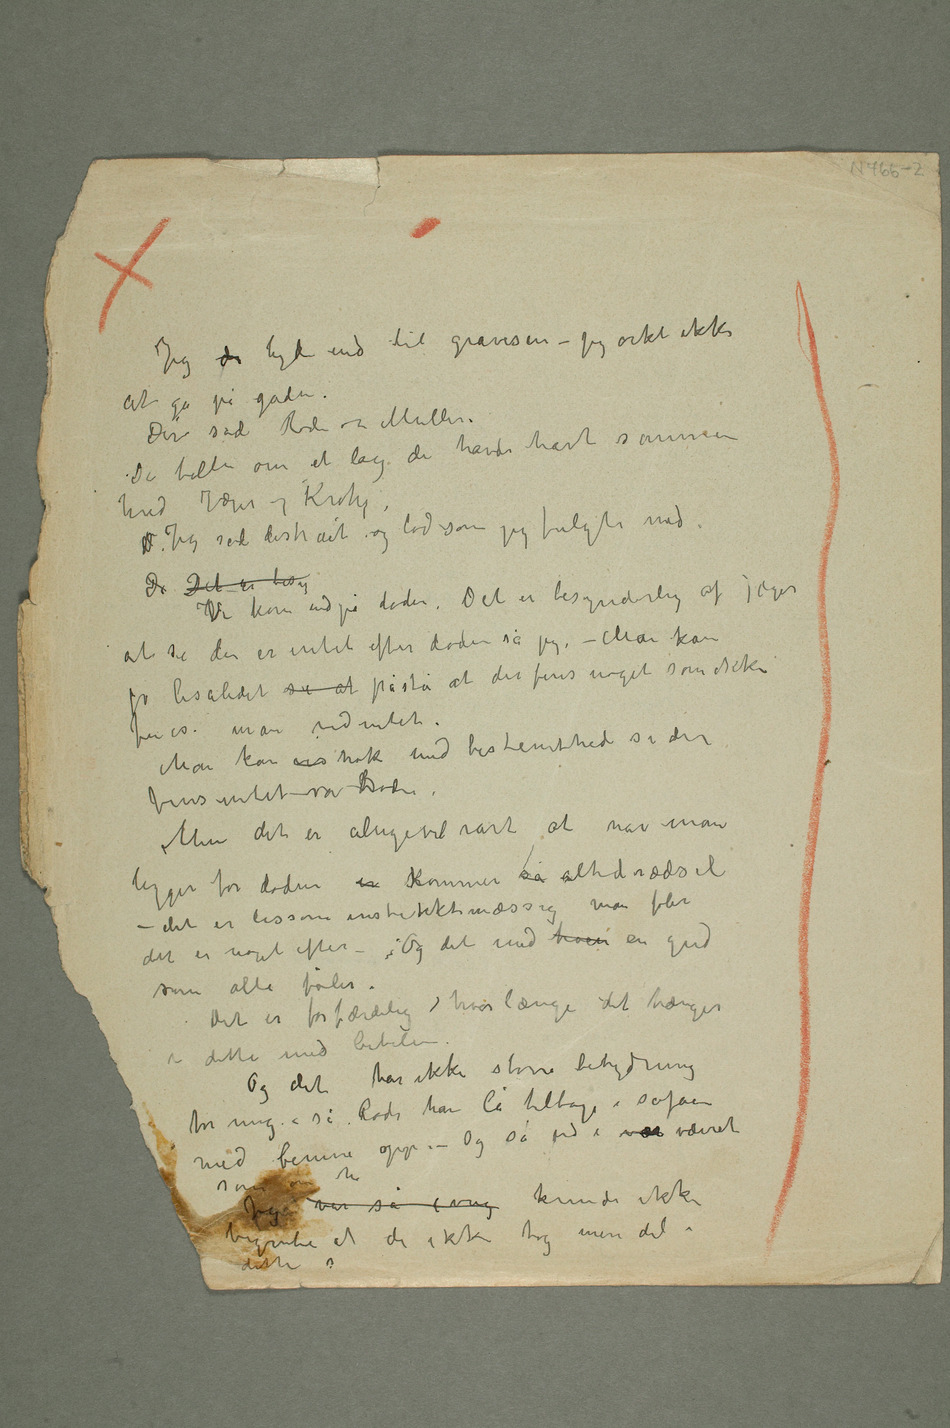 N466-2
Jeg de lgde ind til gravesen – jeg orket ikke
at gå på gaden.
Der sad Rode og Müller.
De talte om et lag de havde havt sammen
hved Jæger og Krohg.
D. Jeg sad distrait og lod som jeg fulgte med.
De Det er besy
Vi kom ind på døden. Det er besynderlig af jæger
at si der er intet efter døden sa jeg. – Man kan
jo ligeledet si at påstå at der fins noget som ikke
fines. man ved intet.
Man kan nok med bestemthed si der
fins intet sa Rode.
Men det er alligevel rart at nar man
ligger for døden er kommer så altid rædsel
– det er lissom instinktmæssig man føler
det er noget efter – ; Og det med troen en gud
som alle føler.
Det er forfærdelig hvor længe det hænger
i dette med bibelen.
Og det har ikke større betydning
for mig. sa Rode han lå tilbage i sofaen
med benene opp – Og så ud i vær været
som om
Jeg var så ivrig kunde ikke
begribe at de ikke tog mere del i
dette